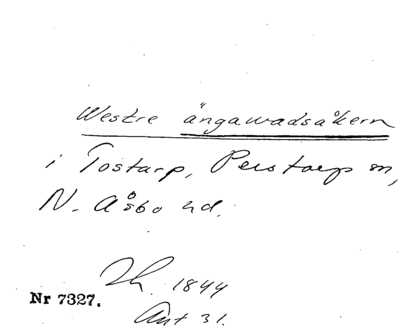 Westre ängawadsåkern
i Tostarp, Perstorp sn,
N. Åsbo hd.
Lh. 1844
Nr 7327.
Akt 31.